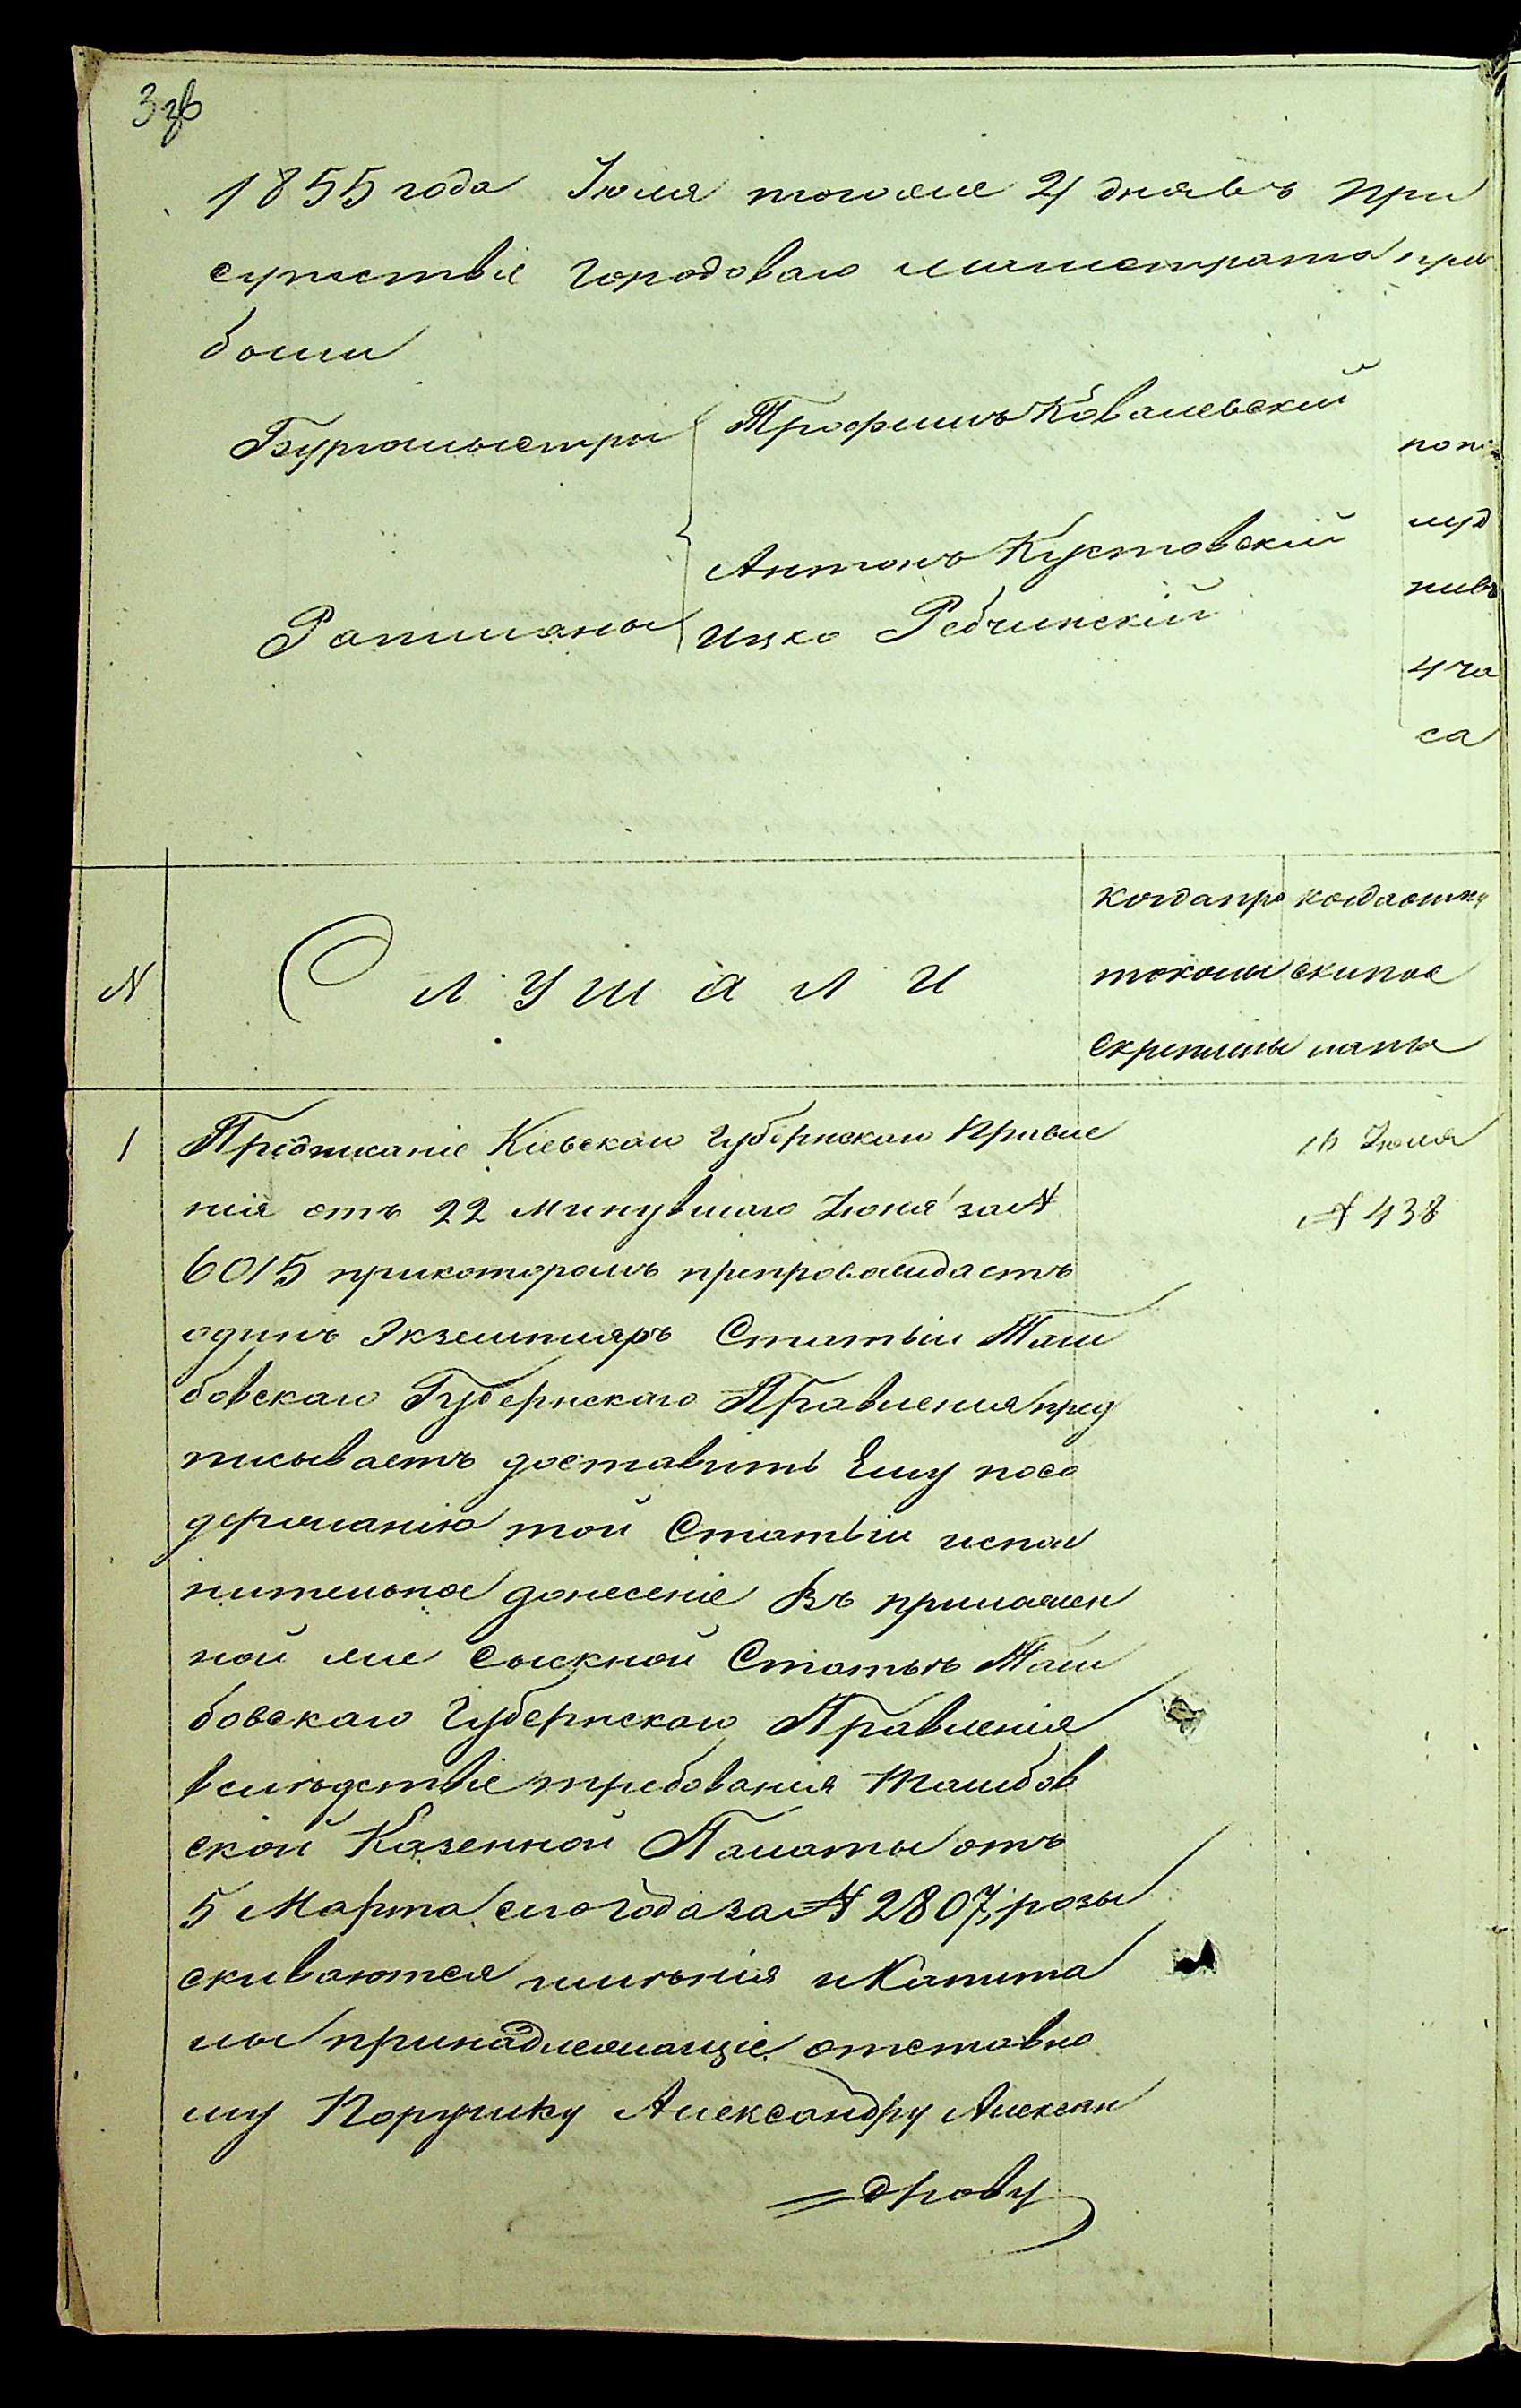 1855 года Іюля тогоже 4 дня въ при
сутствіе Городоваго магистрата при
были
Бургомыстры Трофимъ Ковалевскій
Антонъ Кустовскій
Ратманы Ицко Ребчинскій
попо
луд
нивъ
4 ча
са
N
Слушали
когда про
токолы
скреплены
когда отпу
ски пос
ланы
1
Предписаніе Кіевскаго Губернскаго Правле
нія отъ 22 минувшаго Іюня за №
6015 прикоторомъ препровождаетъ
одинъ Экземпляръ Статьи Там
бовскаго Губернскаго Правления пред
писываетъ доставить Ему посо
держанію той Статьи испол
нительное донесеніе Въ приложен
ной же сыскной Статьѣ Там
бовскаго Губернскаго Правленія
вслѣдствіе требованія Тамбов
ской Казенной Палаты отъ
5 Марта сего года за № 2807, разы
скиваются имѣнія и Капита
лы принадлежащіе отставно
му Поручику Александру Алексан
=дрову
16 Іюля
№ 438